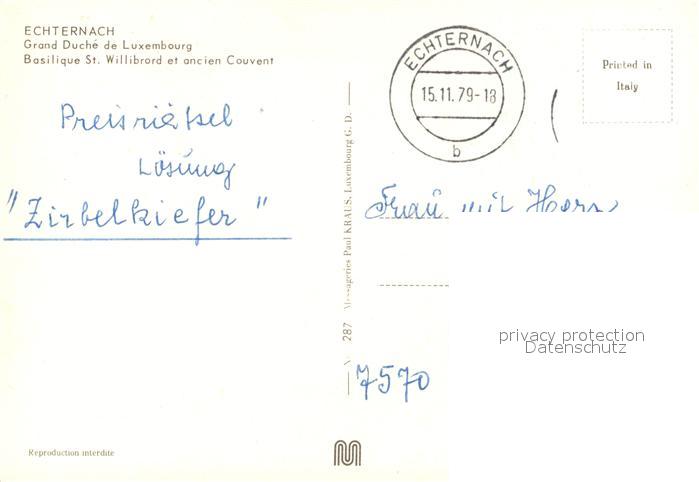 ECHTERNACH
Grand Duché de Luxembourg
Basilique St. Willibrord et ancien Couvent
Preisrätsel
Lösung
"Zirbelkiefer"
Reproduction interdite
287 Messageries Paul KRAUS, Luxembourg G. D.
ECHTERNACH
15.11.79-18
b
Printed in
Italy
Frau
7570
privacy protection
Datenschutz